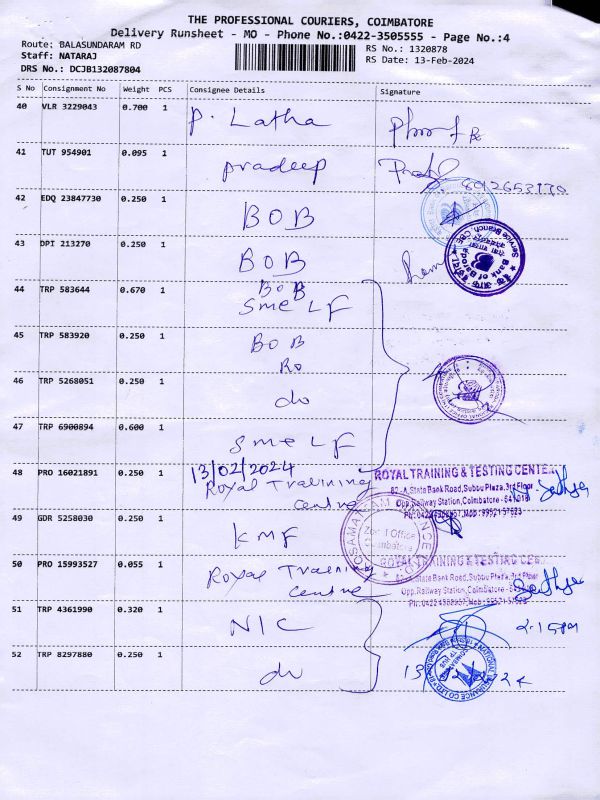 THE PROFESSIONAL COURIERS, COIMBATORE
Delivery Runsheet - MO - Phone No.:0422-3505555 - Page No.:4
Route: BALASUNDARAM RD
RS No.: 1320878
Staff: NATARAJ
RS Date: 13-Feb-2024
DRS No.: DCJB132087804
S No Consignment No Weight PCS Consignee Details Signature
40 VLR 3229043 0.700 1 P. Latha
41 TUT 954901 0.095 1 pradeep
42 EDQ 23847730 0.250 1 BOB
43 DPI 213270 0.250 1 BOB Ram
Service Branch, CBE
Bank of Baroda
44 TRP 583644 0.670 1 BOB
Sme LF
45 TRP 583920 0.250 1 BOB
Ro
46 TRP 5268051 0.250 1 do
47 TRP 6900894 0.600 1 Sme LF
13/02/2024
48 PRO 16021891 0.250 1 Royal Training
Centre
ROYAL TRAINING & TESTING CENTE
82-A, State Bank Road, Subbu Plaza, 3rd Floor
Opp.Railway Station, Coimbatore - 641018
Ph: 0422 4308957, Mob : 9952157623
49 GDR 5258030 0.250 1 KMF
Zonal Office
Coimbatore
50 PRO 15993527 0.055 1 Royal Training
Centre
ROYAL TRAINING & TESTING CE
82-A, State Bank Road, Subbu Plaza, 3rd Floor
Opp.Railway Station, Coimbatore
51 TRP 4361990 0.320 1 NIC
2.15pm
52 TRP 8297880 0.250 1 do